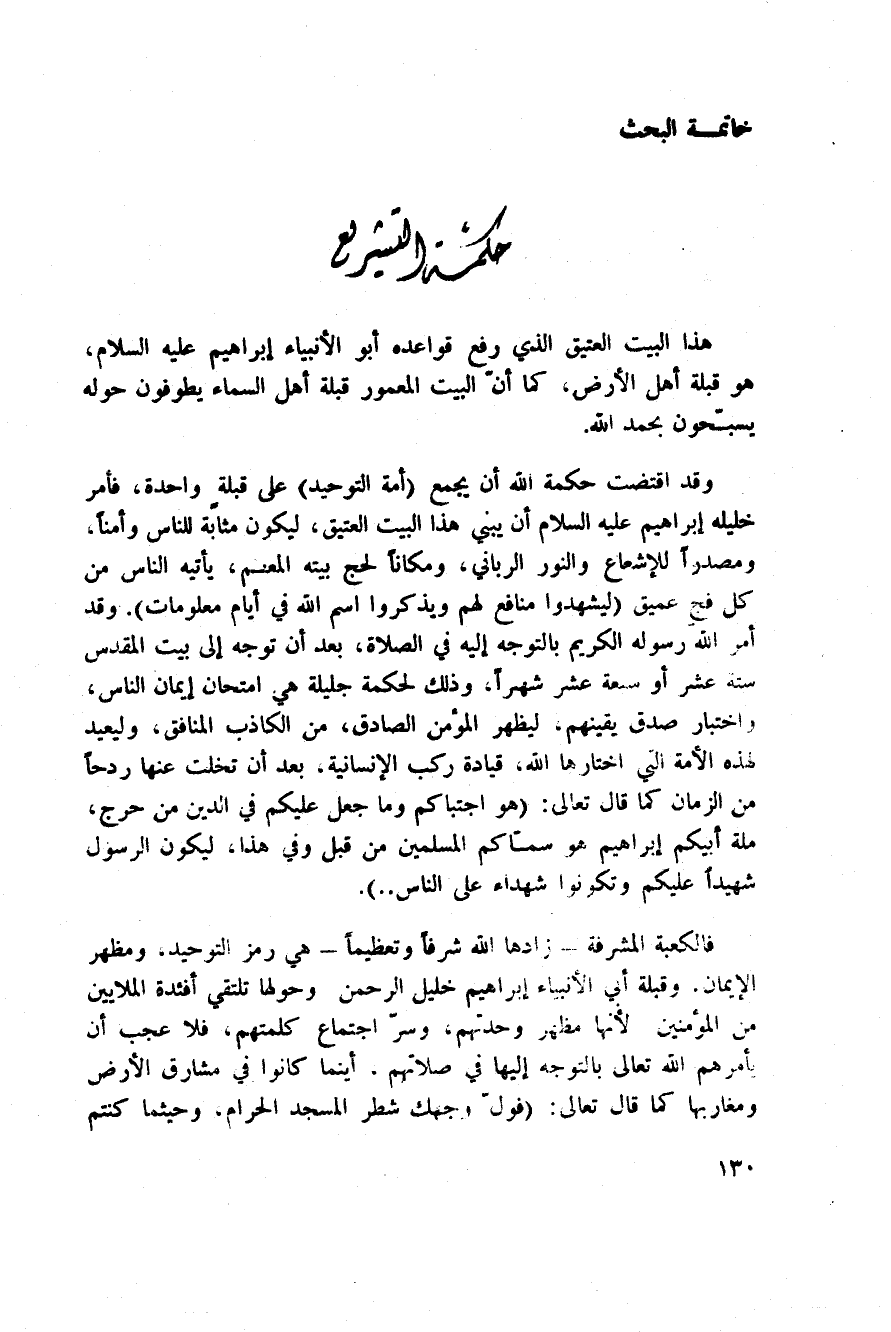 خاتمـــة البحث
حكمة التشريع
هذا البيت العتيق الذي رفع قواعده أبو الأنبياء إبراهيم عليه السلام،
هو قبلة أهل الأرض، كما أنّ البيت المعمور قبلة أهل السماء يطوفون حوله
يسبّحون بحمد الله.
وقد اقتضت حكمة الله أن يجمع (أمة التوحيد) على قبلةٍ واحدة، فأمر
خليله إبراهيم عليه السلام أن يبني هذا البيت العتيق، ليكون مثابة للناس وأمناً،
ومصدراً للإشعاع والنور الرباني، ومكاناً لحج بيته المعـم، يأتيه الناس من
كل فج عميق (ليشهدوا منافع لهم ويذكروا اسم الله في أيام معلومات). وقد
أمر الله رسوله الكريم بالتوجه إليه في الصلاة، بعد أن توجه إلى بيت المقدس
ستة عشر أو سبعة عشر شهراً، وذلك لحكمة جليلة هي امتحان إيمان الناس،
واختبار صدق يقينهم، ليظهر المؤمن الصادق، من الكاذب المنافق، وليعيد
لهذه الأمة التي اختارها الله، قيادة ركب الإنسانية، بعد أن تخلت عنها ردحاً
من الزمان كما قال تعالى: (هو اجتباكم وما جعل عليكم في الدين من حرج،
ملة أبيكم إبراهيم هو سمـّاكم المسلمين من قبل وفي هذا، ليكون الرسول
شهيداً عليكم وتكونوا شهداء على الناس..).
فالكعبة المشرفة – زادها الله شرفاً وتعظيماً – هي رمز التوحيد، ومظهر
الإيمان. وقبلة أبي الأنبياء إبراهيم خليل الرحمن وحولها تلتقي أفئدة الملايين
من المؤمنين لأنها مظهر وحدتهم، وسرّ اجتماع كلمتهم، فلا عجب أن
يأمرهم الله تعالى بالتوجه إليها في صلاتهم . أينما كانوا في مشارق الأرض
ومغاربها كما قال تعالى: (فولّ وجهك شطر المسجد الحرام، وحيثما كنتم
١٣٠